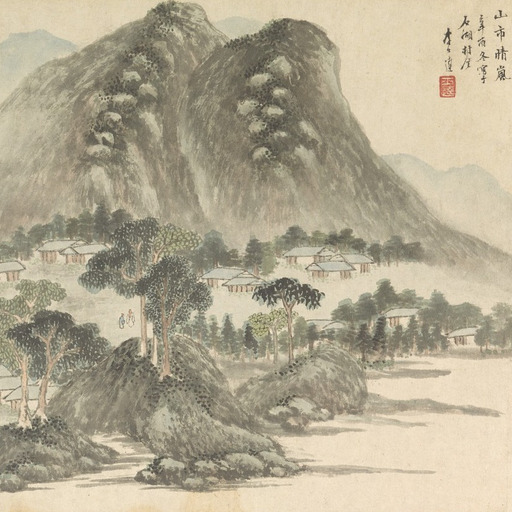 山市晴嵐
辛酉冬寫于
石湖村居
李士達